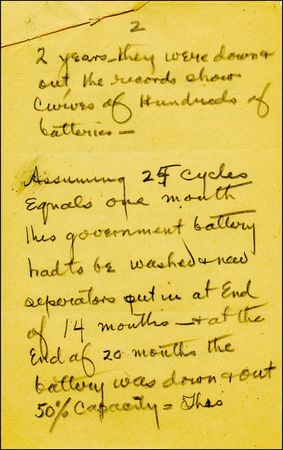 2
2 years—they were down &
out the records show
curves of Hundreds of
batteries—
Assuming 25 cycles
Equals one month
this government battery
had to be washed & new
seperators put in at End
of 14 months — & at the
End of 20 months the
battery was down & out
50% Capacity = This